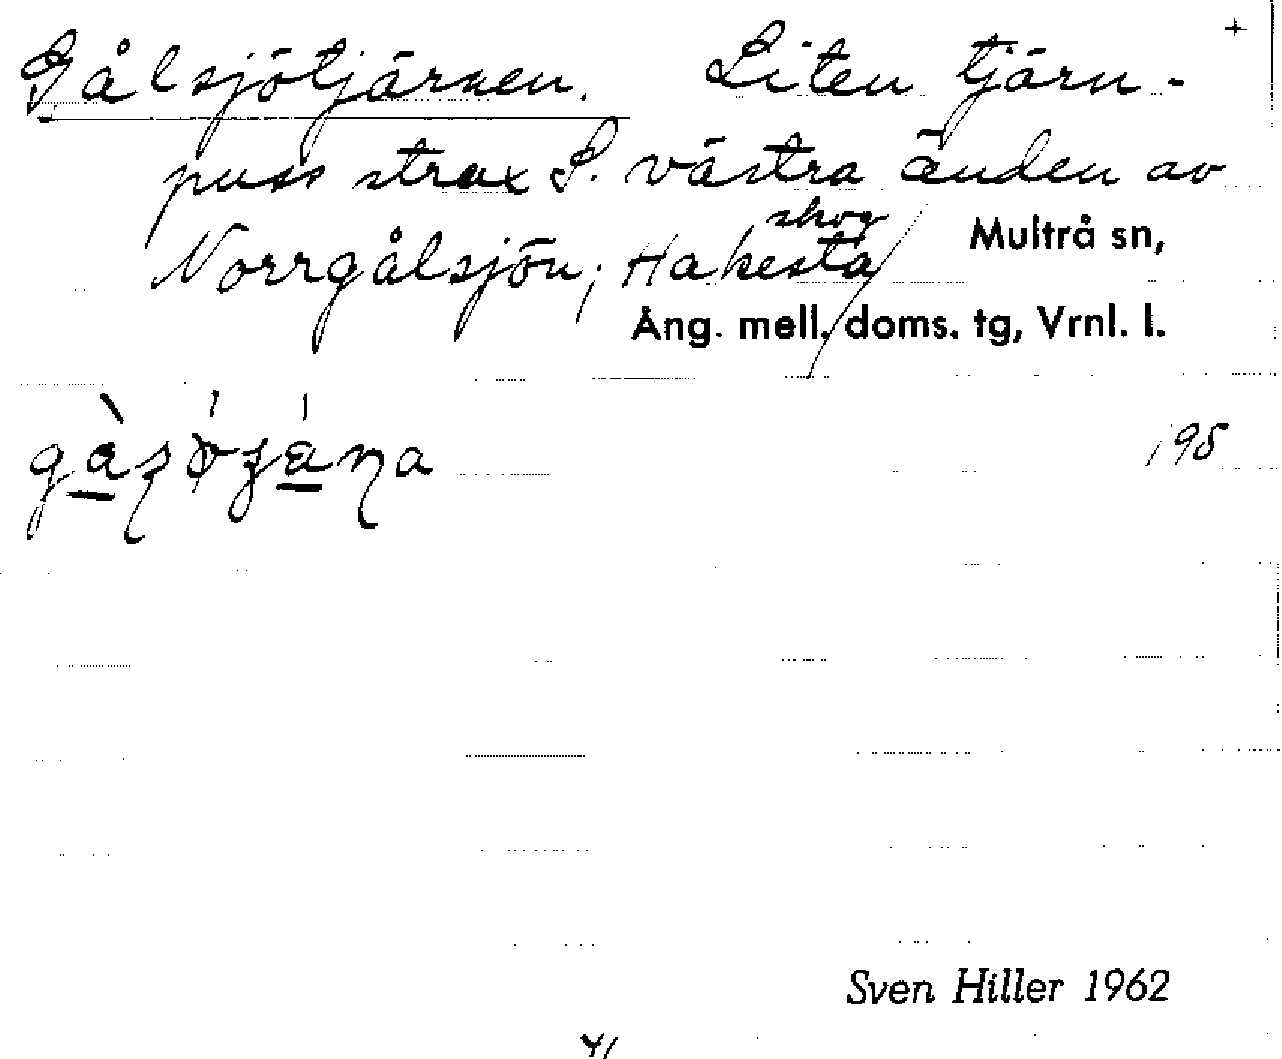 +
Gålsjötjärnen. Liten tjärn-
puss strax S. västra änden av
Norrgålsjön; Hakesta skog
Multrå sn,
Ång. mell. doms. tg, Vrnl. l.
195
Sven Hiller 1962